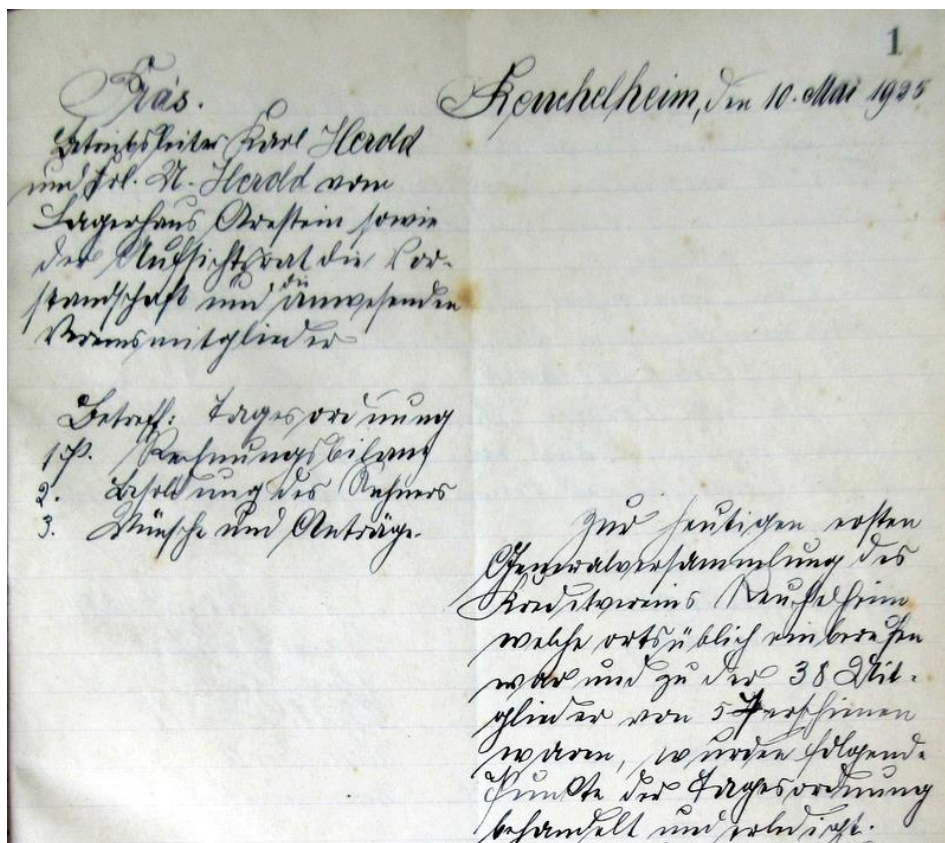 1
Präs.
Reuchelheim, den 10. Mai 1925
Betriebsleiter Karl Herold
und Frl. A. Herold vom
Lagerhaus Arnstein sowie
der Aufsichtsrat die Vor-
standschaft und die anwesenden
Vereinsmitglieder
Betreff: Tagesordnung
1. P. Rechnungsbilanz
2. Besoldung des Rechners
3. Wünsche und Anträge.
Zur heutigen ersten
Generalversammlung des
Kreditvereins Reuchelheim
welche ortsüblich einberufen
war und zu der 38 Mit-
glieder von 57 erschienen
waren, wurden folgende
Punkte der Tagesordnung
behandelt und erledigt.